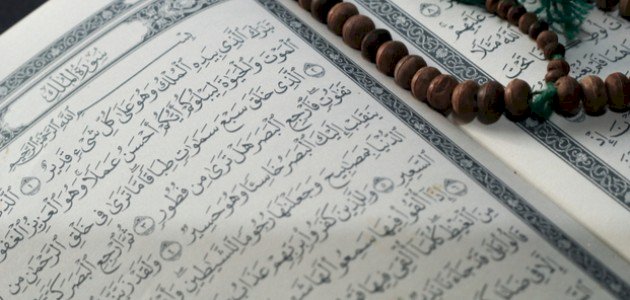 سُورَةُ الْمُلْكِ
بِسْمِ اللَّهِ الرَّحْمَٰنِ الرَّحِيمِ
تَبَٰرَكَ الَّذِي بِيَدِهِ الْمُلْكُ وَهُوَ عَلَىٰ كُلِّ شَيْءٍ قَدِيرٌ ١
الْمَوْتَ وَالْحَيَوٰةَ لِيَبْلُوَكُمْ أَيُّكُمْ أَحْسَنُ عَمَلًا وَهُوَ الْعَزِيزُ الْغَفُورُ
الَّذِي خَلَقَ سَبْعَ سَمَٰوَٰتٍ طِبَاقًا مَّا تَرَىٰ فِي خَلْقِ الرَّحْمَٰنِ مِن
تَفَٰوُتٍ فَارْجِعِ الْبَصَرَ هَلْ تَرَىٰ مِن فُطُورٍ ٣ ثُمَّ ارْجِعِ الْبَصَرَ
يَنقَلِبْ إِلَيْكَ الْبَصَرُ خَاسِئًا وَهُوَ حَسِيرٌ ٤ وَلَقَدْ
الدُّنْيَا بِمَصَٰبِيحَ وَجَعَلْنَٰهَا رُجُومًا لِّلشَّيَٰطِينِ
السَّعِيرِ ٥ وَلِلَّذِينَ كَفَرُوا بِرَبِّهِمْ عَذَابُ
إِذَا أُلْقُوا فِيهَا سَمِعُوا لَهَا
مِنَ الْغَيْظِ كُلَّمَا أُلْقِيَ فِيهَا